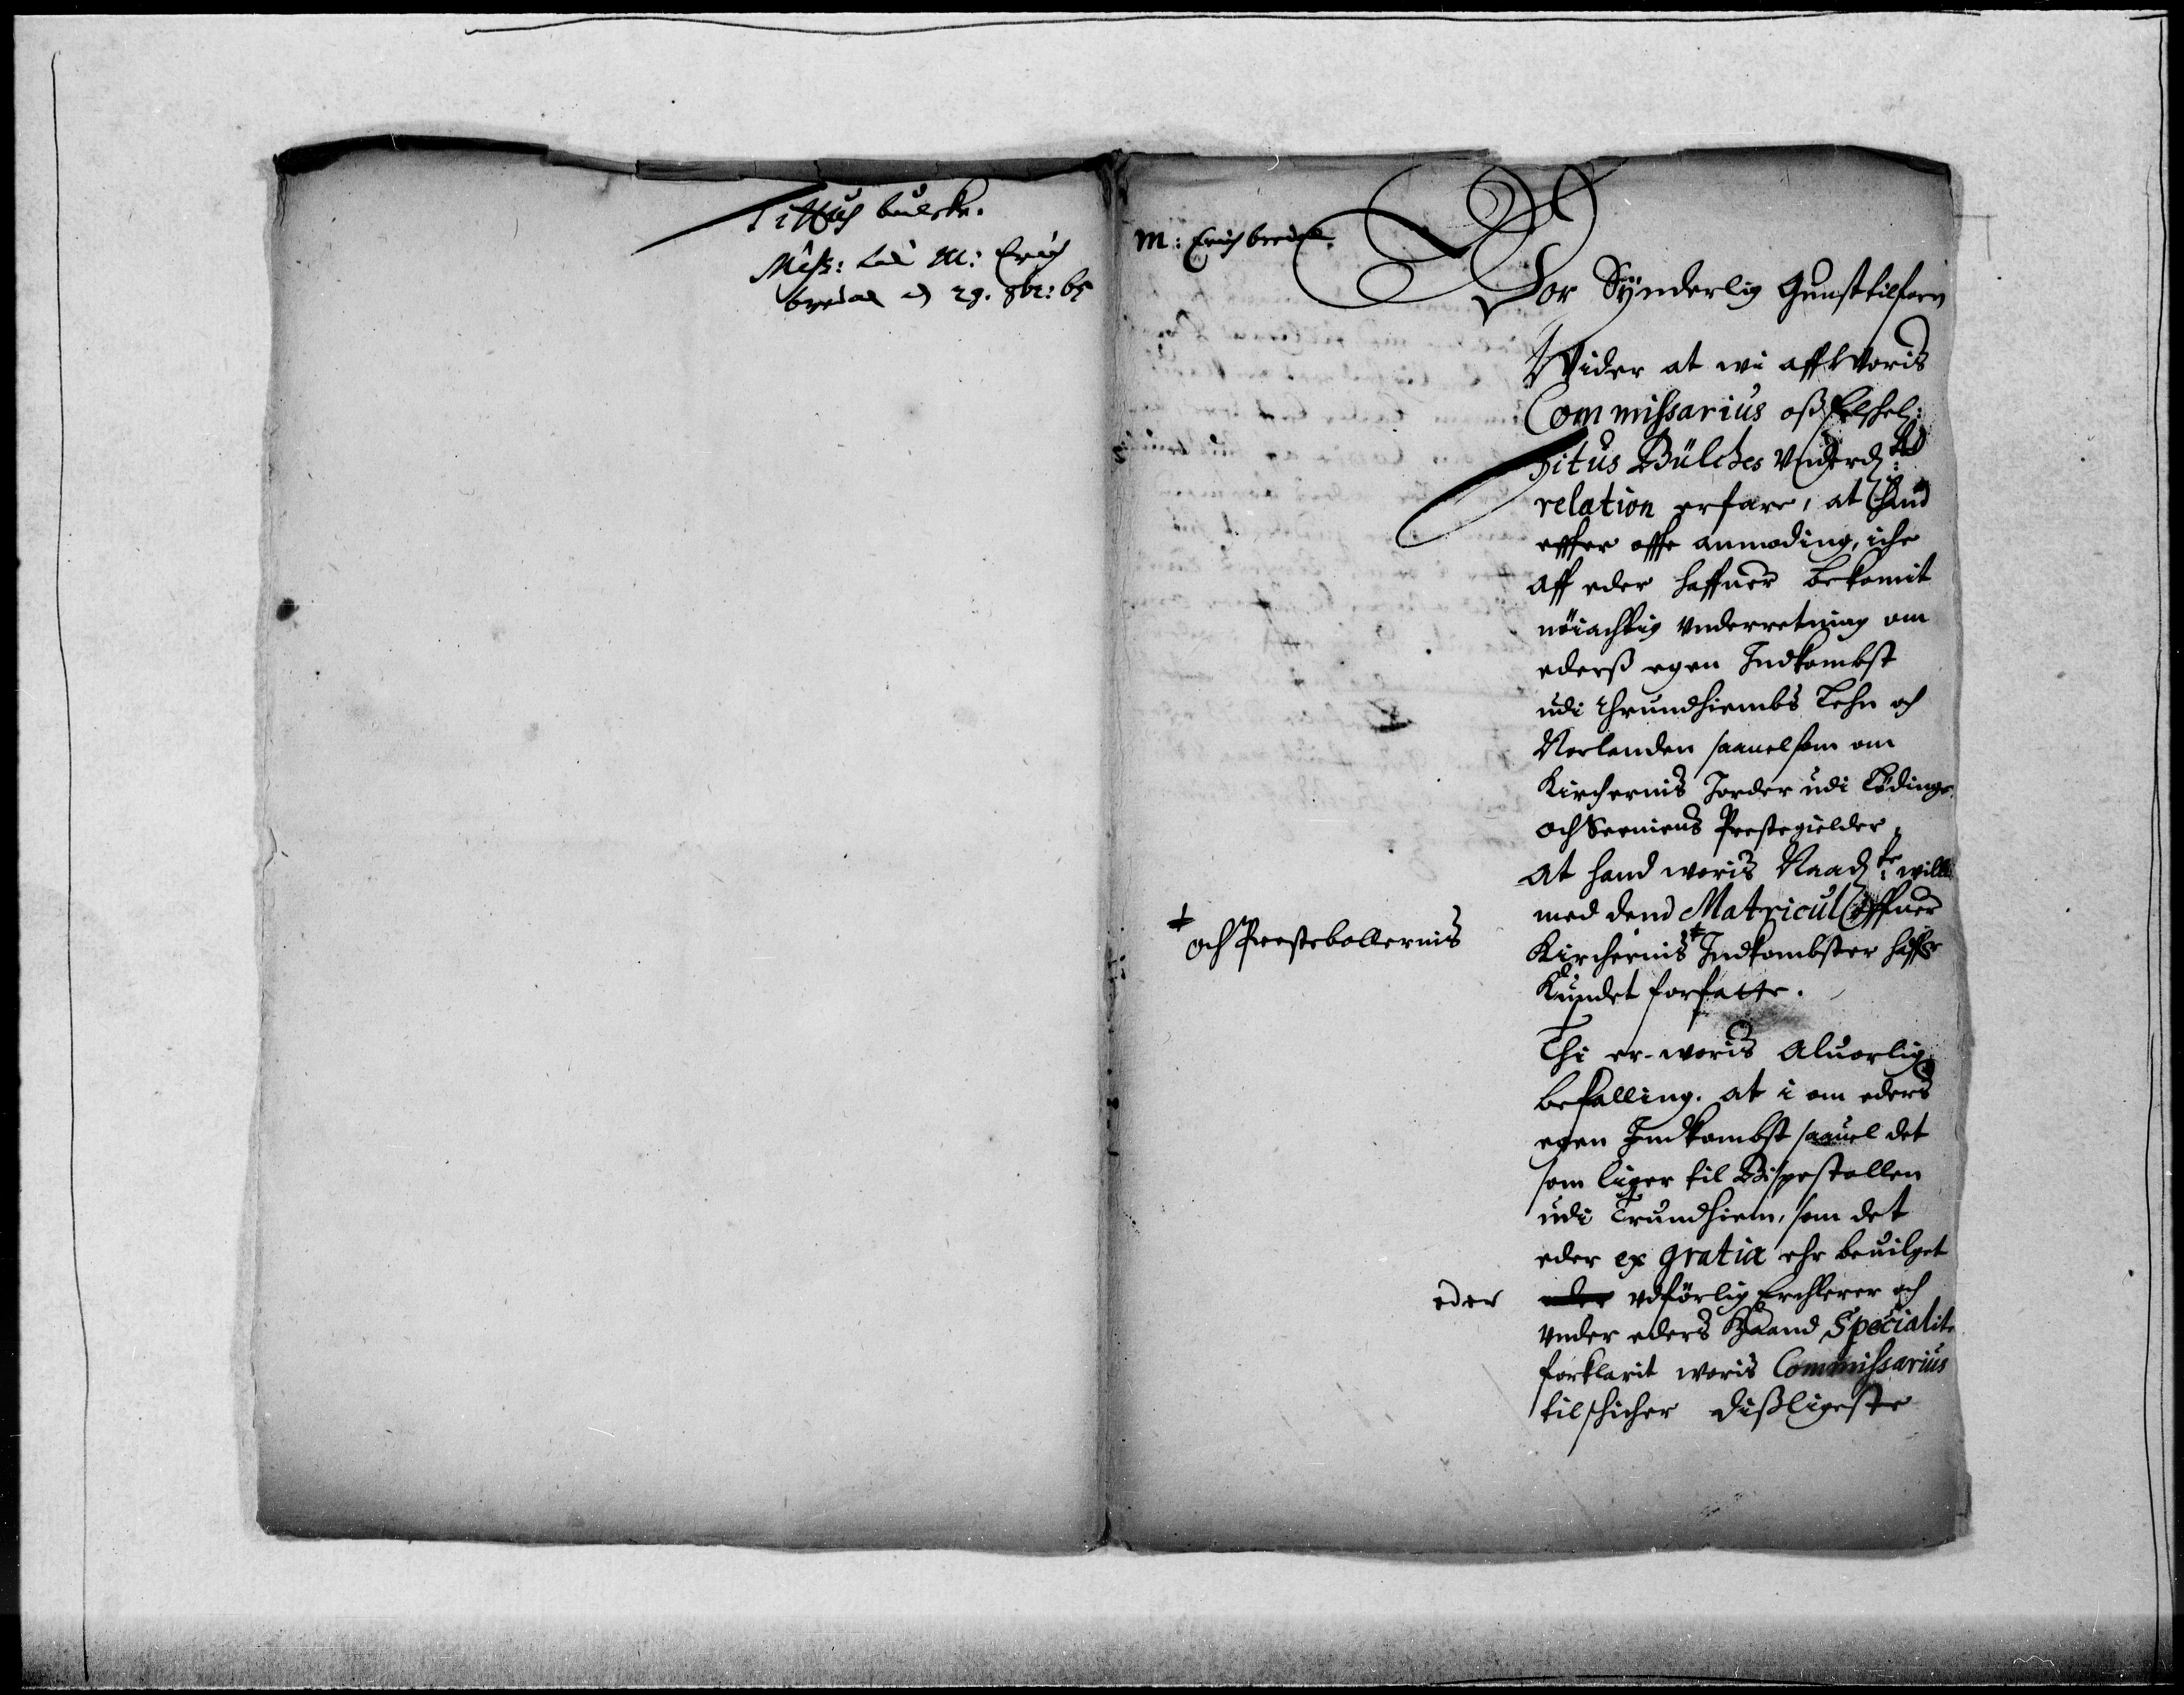 Tittus bulche.
Miss: till M: Erich
bredal d 29. 8br: 65
M: Erich bredal.
Vor Synderlig Gunst tilforn
Wider at wi aff Woris
Commissarius oss Elschel:
Titus Bülches Underd:
relation erfare, at hand
effter offte anmoding, iche
aff eder haffuer bekomit
nöiachtig Underretning om
ederss egen Indkombst
udi Thrundhiembs Lehn och
Norlanden saauelsom om
Kirchernis Jorder udi Lödinge
och Senniens Prestegielder
at hand woris Naad: willie
med dend Matricul öffuer
Kirchernis + Indkombster haffr
Kundet forfatte.
+ och Prestebollernis
Thi er woris Aluorlig
befalling. at i om eders
egen Indkombst saauel det
som liger til Bispestollen
udi Trundhiem, som det
eder ex gratia ehr beuilget
eder udförlig Erchlerer och
under eders Haand Specialite
forklarit woris Commissarius
tilschicher dissligeste